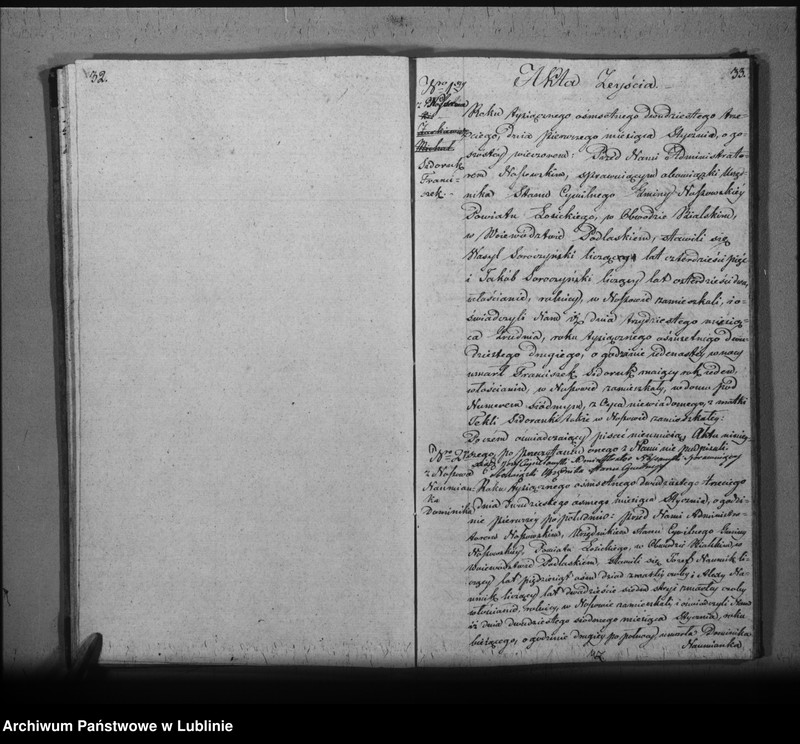 32.
33.
Akta Zeyścia.
Nro 1.
Sidoruk
Franci-
szek.
Roku tysiącznego ośmsetnego dwudziestego trze-
ciego, dnia pierwszego miesiąca Stycznia, o go-
szóstej wieczorem: Przed Nami Administrato-
rem Nosowskim, sprawuiącym obowiązki Urzę-
dnika Stanu Cywilnego Gminy Nosowskiey
Powiatu Łosickiego, w Obwodzie Bialskim,
w Woiewództwie Podlaskiem, stawili się
Wasyl Soroczyński liczący lat czterdzieści pięć
i Jakób Soroczyński liczący lat czterdzieści dwa,
włościanie, rolnicy, w Nosowie zamieszkali, i o-
świadczyli Nam iż dnia trzydziestego miesią-
ca Grudnia, roku tysiącznego ośmsetnego dwu-
dziestego drugiego, o godzinie jedenastey w nocy
umarł Franciszek Sidoruk maiący rok jeden,
włościanin, w Nosowie zamieszkały, w domu pod
Numerem siódmym, z Oyca niewiadomego, z matki
Tekli Sidoranki także w Nosowie zamieszkałey:
Poczém oświadczaiący pisać nieumieią, Aktu niniey-
szego, po przeczytaniu onego z Nami nie podpisali
Nro 2.
z Nosowa
Naumian-
ka
Dominika
Roku tysiącznego ośmsetnego dwudziestego trzeciego
dnia dwudziestego ósmego miesiąca Stycznia, o godzi-
nie pierwszey po południu: przed Nami Administra-
torem Nosowskim, Urzędnikiem stanu Cywilnego Gminy
Nosowskiey, Powiatu Łosickiego, w Obwodzie Bialskim, w
Woiewództwie Podlaskiem, stawili się Jozef Naumik li-
czący lat pięćdziesiąt ośm dziad zmarłey osoby i Alexy Na-
umik liczący lat dwadzieście siedm stryi zmarłey osoby
włościanie, rolnicy, w Nosowie zamieszkali, i oświadczyli Nam
iż dnia dwudziestego siódmego miesiąca Stycznia, roku
bieżącego, o godzinie drugiey po północy, umarła Dominika
Naumianka
Archiwum Państwowe w Lublinie